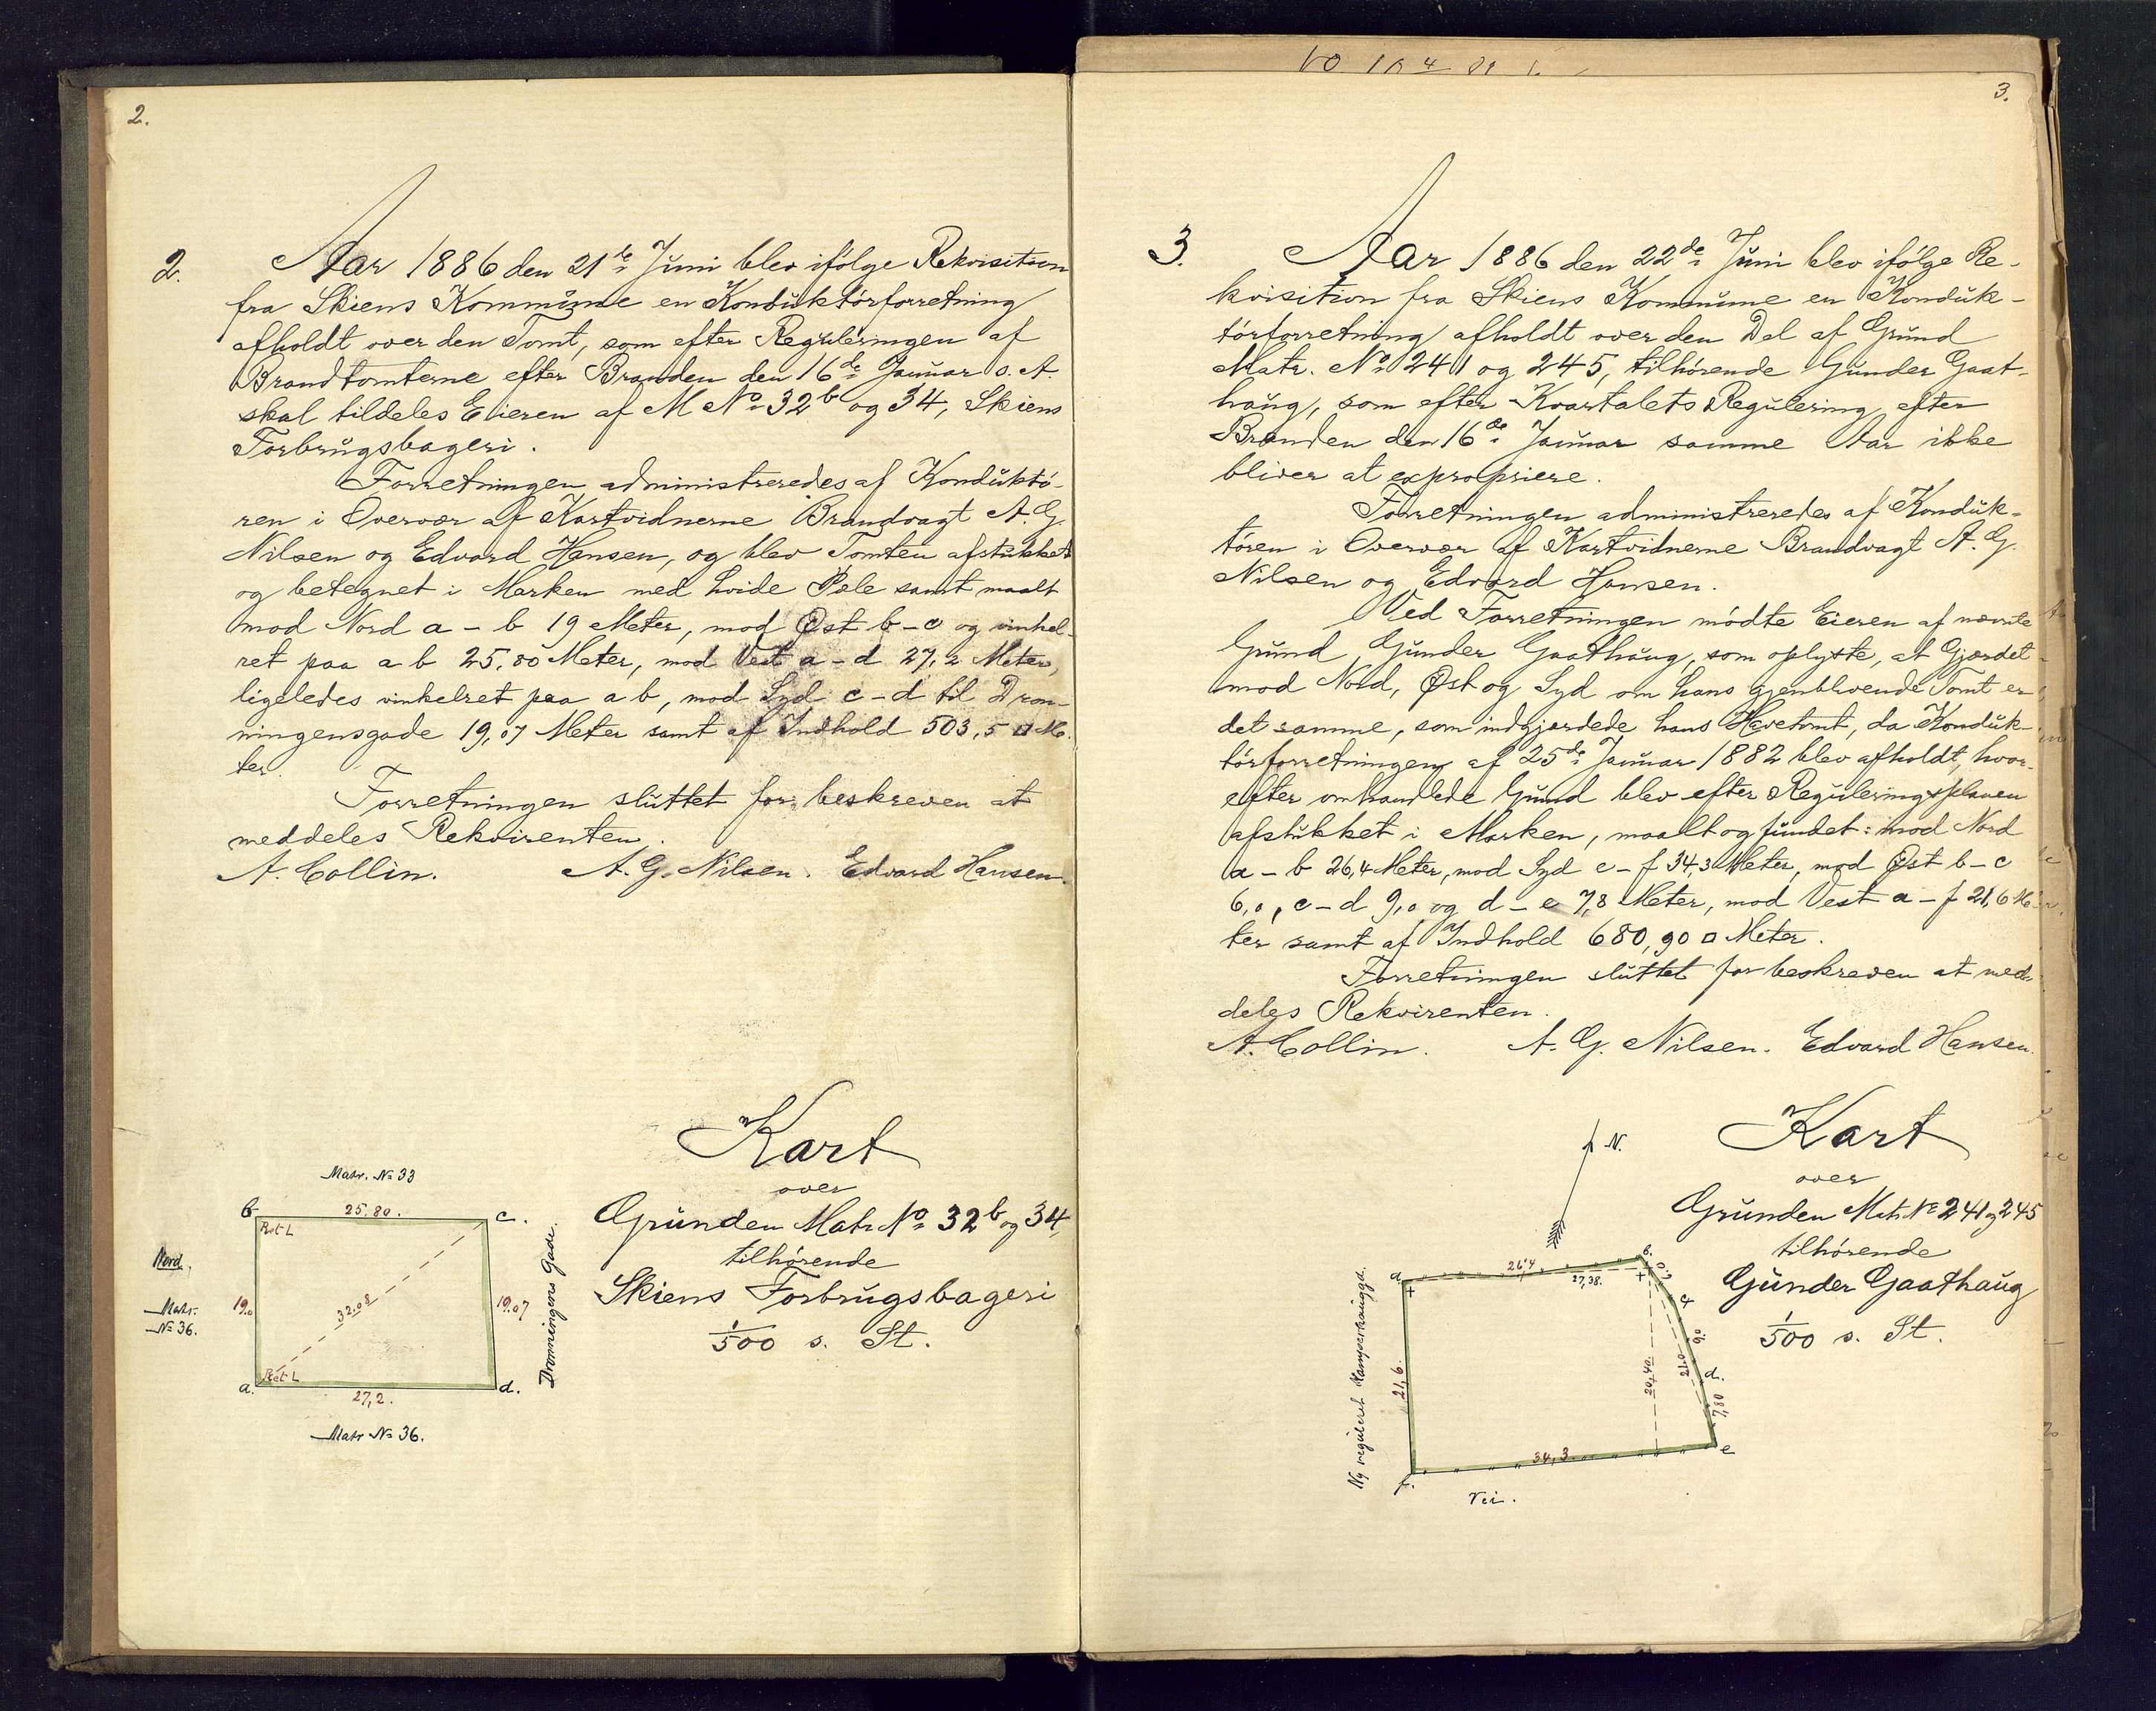 2.
2. Aar 1886 den 21de Juni blev ifølge Rekvisition
fra Skiens Kommune en Konduktørforretning
afholdt over den Tomt, som efter Reguleringen af
Brandtomterne efter Branden den 16de Januar s. A.
skal tildeles Eieren af M No 32b og 34, Skiens
Forbrugsbageri.
Forretningen administreredes af Konduktø-
ren i Overvær af Kartvidnerne Brandvagt A. G.
Nilsen og Edvard Hansen, og blev Tomten afstukket
og betegnet i Marken med hvide Pæle samt maalt
mod Nord a - b 19 Meter, mod Øst b - c og vinkel-
ret paa a b 25,80 Meter, mod Vest a - d 27,2 Meter,
ligeledes vinkelret paa a b, mod Syd c - d til Dron-
ningensgade 19,07 Meter samt af Indhold 503,5 □ Me-
ter.
Forretningen sluttet for beskreven at
meddeles Rekvirenten.
A. Collin. A. G. Nilsen. Edvard Hansen.
Kart
over
Grunden Matr No 32b og 34
tilhørende
Skiens Forbrugsbageri
1/500 s. St.
Matr. No 33
b 25.80. c.
Ret L
Nord.
Matr.
No 36.
19.0
32.08
19.07
Dronningens Gade.
Ret L
a. 27,2. d.
Matr No 36.
3.
3. Aar 1886 den 22de Juni blev ifølge Re-
kvisition fra Skiens Kommune en Konduk-
tørforretning afholdt over den Del af Grund
Matr. No 241 og 245, tilhørende Gunder Gaat-
haug, som efter Kvartalets Regulering efter
Branden den 16de Januar samme Aar ikke
bliver at expropriere.
Forretningen administreredes af Konduk-
tøren i Overvær af Kartvidnerne Brandvagt A. G.
Nilsen og Edvard Hansen.
Ved Forretningen mødte Eieren af nævnte
Grund, Gunder Gaathaug, som oplyste, at Gjærdet
mod Nord, Øst og Syd om hans gjenblivende Tomt er
det samme, som indgjærdede hans Havetomt, da Konduk-
tørforretningen af 25de Januar 1882 blev afholdt, hvor-
efter omhandlede Grund blev efter Reguleringsplanen
afstukket i Marken, maalt og fundet: mod Nord
a - b 26,4 Meter, mod Syd e - f 34,3 Meter, mod Øst b - c
6,0, c - d 9,0 og d - e 7,8 Meter, mod Vest a - f 21,6 Me-
ter samt af Indhold 680,90 □ Meter.
Forretningen sluttet for beskreven at med-
deles Rekvirenten.
A. Collin. A. G. Nilsen. Edvard Hansen.
Kart
over
Grunden Matr No 241 og 245
tilhørende
Gunder Gaathaug
1/500 s. St.
N.
a. 26,4 27,38. b.
6,0
c
9,0
21,6.
20,40.
21.0
d.
7,80
f. 34,3 e
Ny reguleret Kamperhauggd.
Vei.